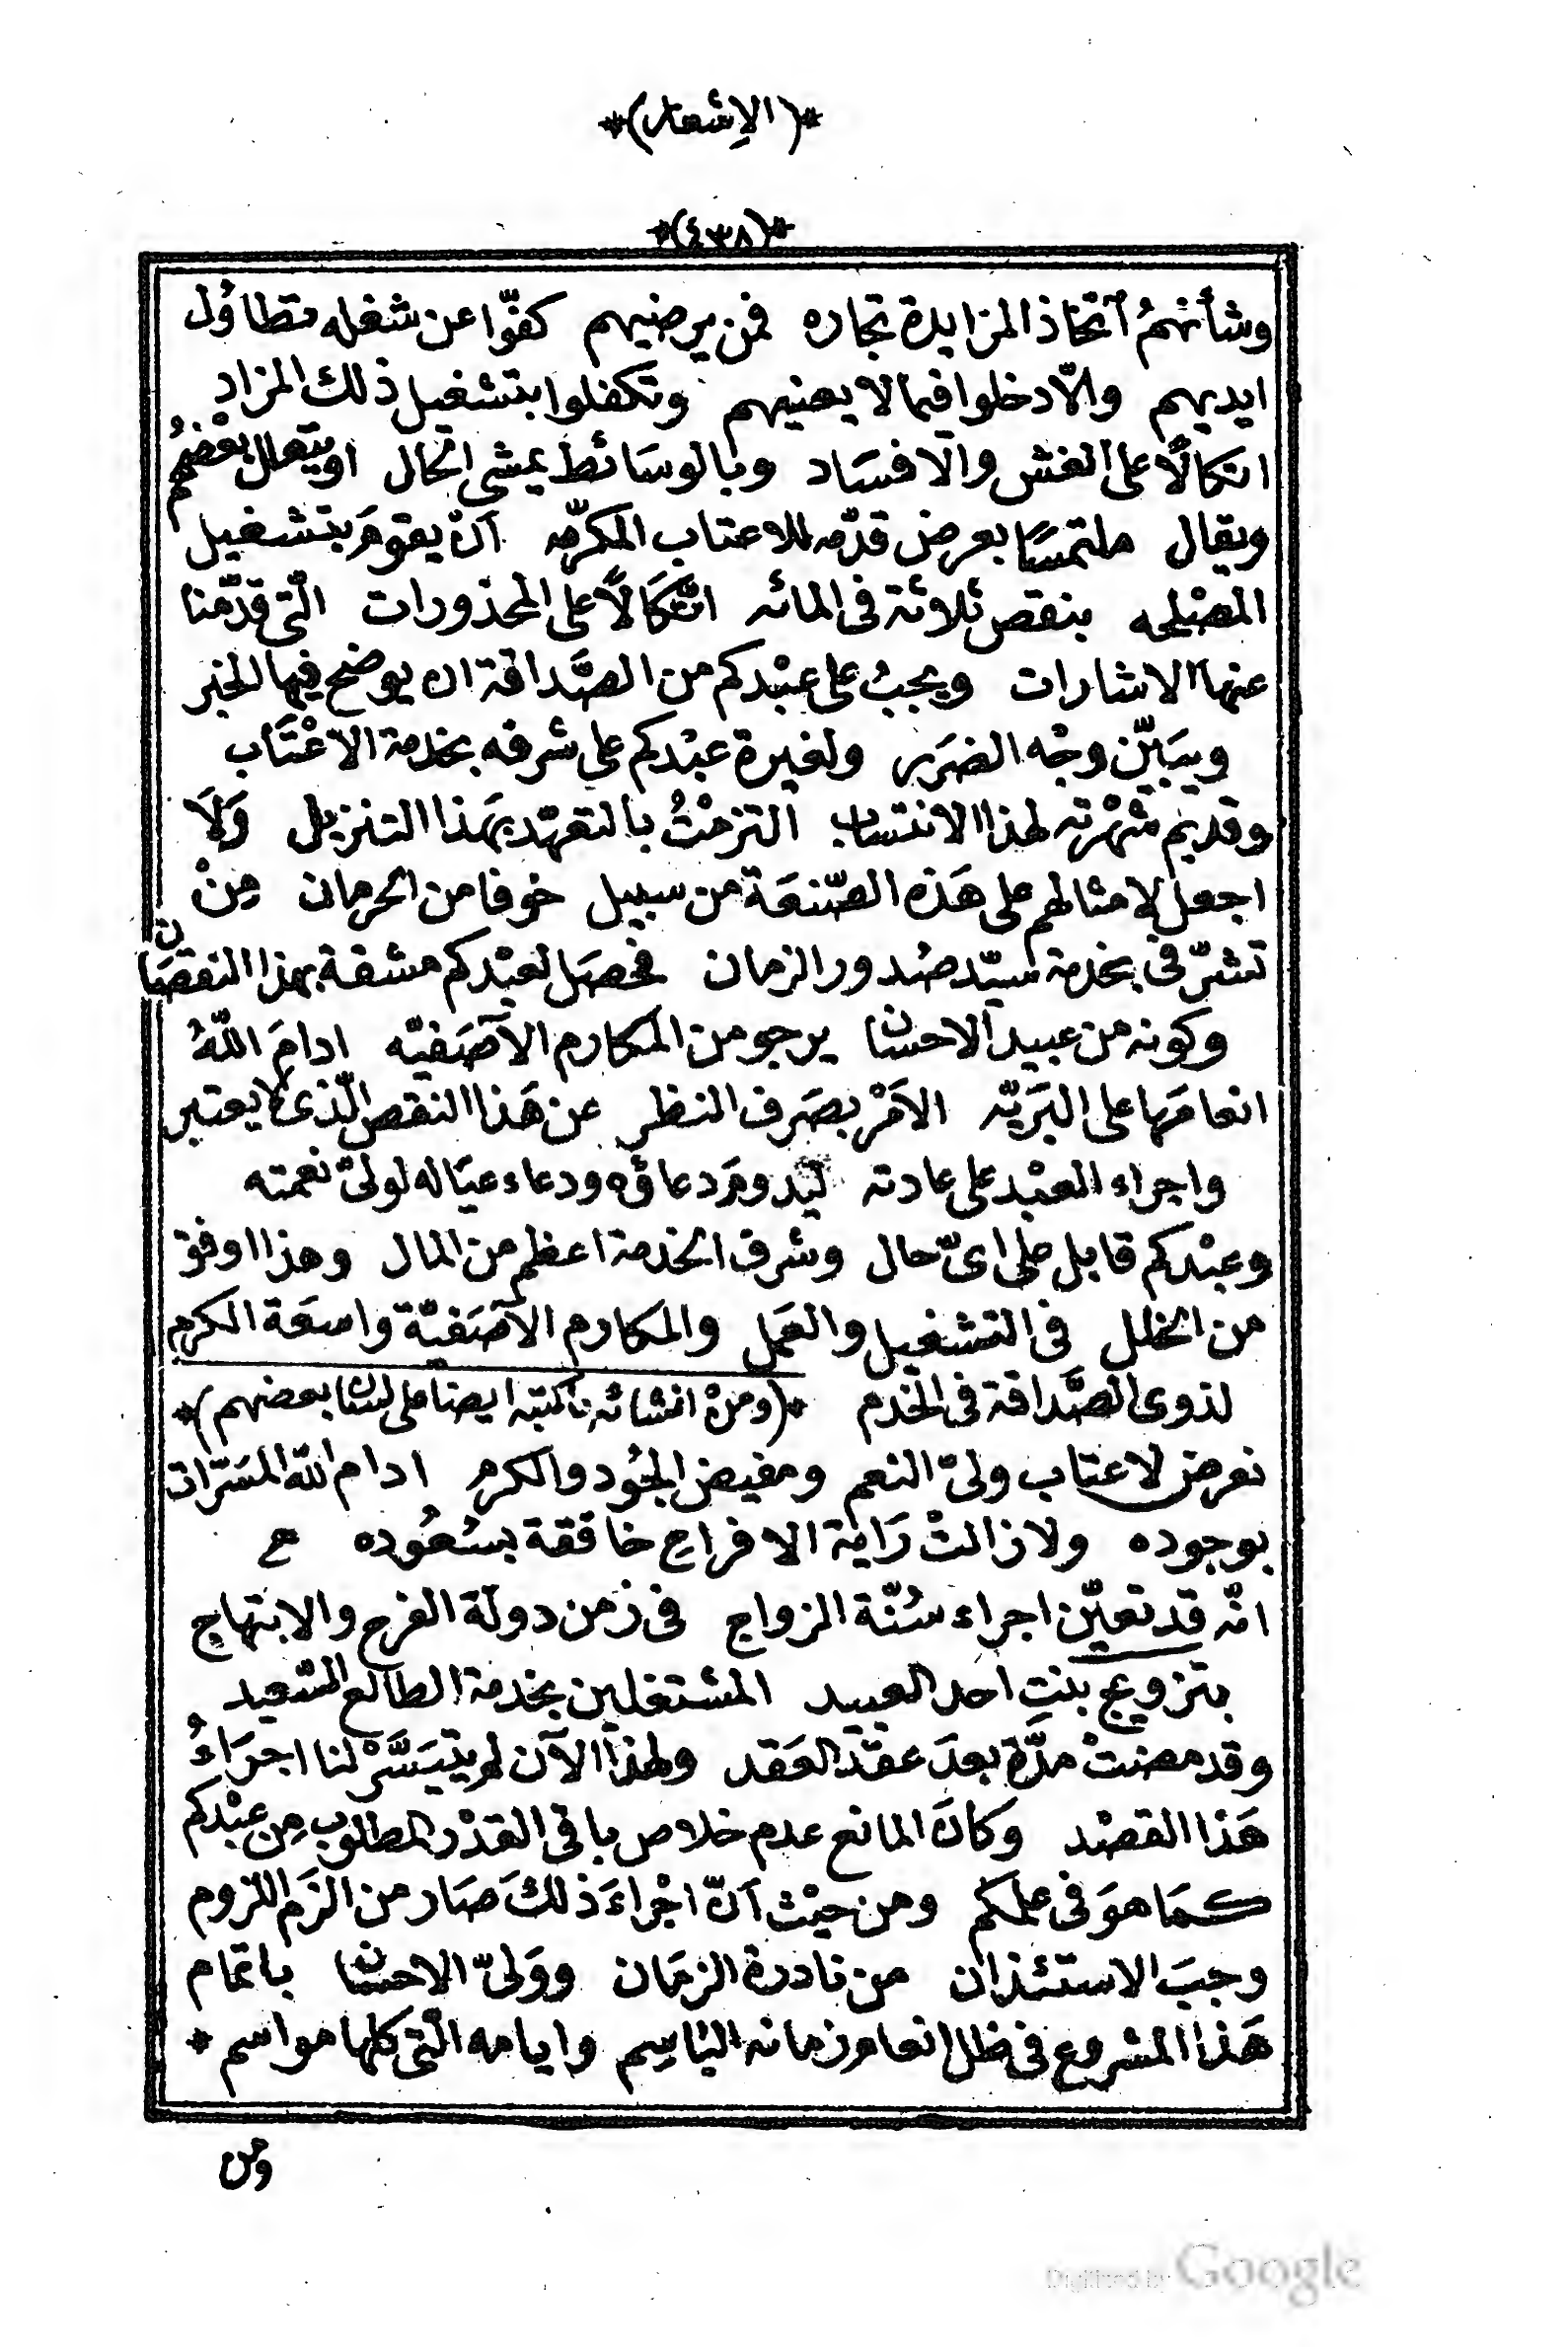 *(الإشعار)*
*(٤٣٨)*
وشأنهمُ اتخاذ المزايدة تجاره فمن يرضيهم كفّوا عن شغله تطاوُل
ايديهم والّا دخلوا فيما لا يعنيهم وتكفلوا بتشغيل ذلك المزاد
اتكالًا على الغش والافسَاد وبالوسَائط يمشى الحال او يتعهد بعْضهُم
ويقال ملتمسًا بعرض قدّمه للاعتاب المكرّمه أنْ يقومَ بتشغيل
المصْلحه بنقص ثلاثة فى المائه اتّكَالًا على المحذورات الّتى قدّمنا
عنها الاشارات ويجبُ على عبْدكم من الصَّداقة ان يوضح فيها الخبر
ويبَيّن وجْه الضرَر ولغيرة عبْدكم على شرفه بخدمة الاعْتَاب
وقديم شهْرته لهذا الانتساب التزمْتُ بالتعهّد بهَذا التنزيل وَلَا
اجعل لامثالهم على هَذه الصّنعَة من سبيل خوفا من الحرمان مِنْ
تشرّفى بخدمة سيّد صُدور الزمان فحصَل لعبْدكم مشقة بهذا النقصَان
وكونه من عبيد الاحسَان يرجو من المكارم الآصَفيّه ادامَ اللّهُ
انعامَها على البَريّه الاَمْر بصَرف النظر عن هَذا النقص الّذى لا يعتبر
واجراء العبْد على عادته ليدومَ دعاؤه ودعاء عيَاله لولىّ نعمته
وعبْدكم قابل على اىّ حال وشرف الخدمة اعظم من المال وهذا اوفق
من الخلل فى التشغيل والعَمل والمكارم الآصَفيّة واسعَة الكرم
لذوى الصَّداقة فى الخدم *(ومنْ انشائه ما كتبه ايضا على لسَان بعضهم)*
نعرض لاعتاب ولىّ النعم ومفيض الجُود والكرم ادام اللّه المسَرّات
بوجوده ولا زالتْ رَاية الافراح خافقة بسُعُوده ع
انّه قد تعيّن اجراء سُنّة الزواج فى زمن دولة الفرح والابتهاج
بتزويج بنت احد العبيد المشتغلين بخدمة الطالع السّعيد
وقد مضتْ مدّة بعدَ عقد العَقد ولهذا الآن لم يتيَسَّرْ لنا اجرَاءُ
هَذا القصْد وَكانَ المانع عدم خلاص باقى القدْر المطلوب مِن عبْدكم
كمَا هوَ فى علمكم ومن حيْث أنّ اجْراءَ ذلكَ صَار من الزَم اللزوم
وجبَ الاستئذان من نادرة الزمَان ووَلىّ الاحسَان باتمام
هَذا المشروع فى ظل انعام زمانه البَاسِم وايامه الّتى كلها مواسم *
ومن
Digitized by Google